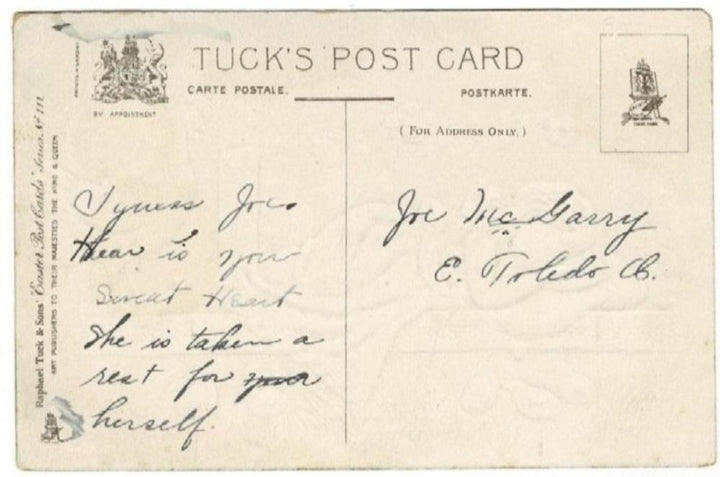 TUCK'S POST CARD
CARTE POSTALE.
POSTKARTE.
BY APPOINTMENT
(FOR ADDRESS ONLY.)
Raphael Tuck & Sons' "Easter Post Cards" Series No 111
ART PUBLISHERS TO THEIR MAJESTIES THE KING & QUEEN
Joe.
Hear is your
Sweat Heart
She is taken a
rest for your
herself.
Joe McGarry
E. Toledo O.